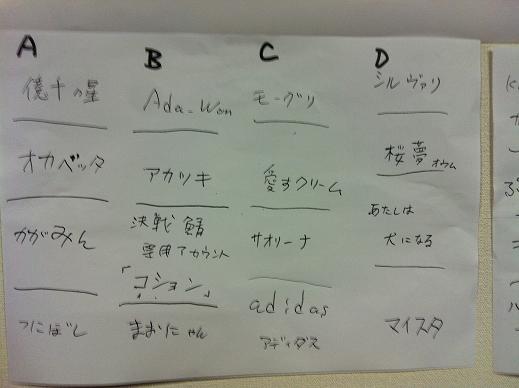 A
億千の星
オカベッタ
かがみん
つにぼし
B
Ada-Won
アカツキ
決戦鯖
専用アカウント
「コション」
まおにゃん
C
モーグリ
愛すクリーム
サオリーナ
adidas
アディダス
D
シルヴァリ
桜夢 オウム
あたしは
犬になる
マイスタ